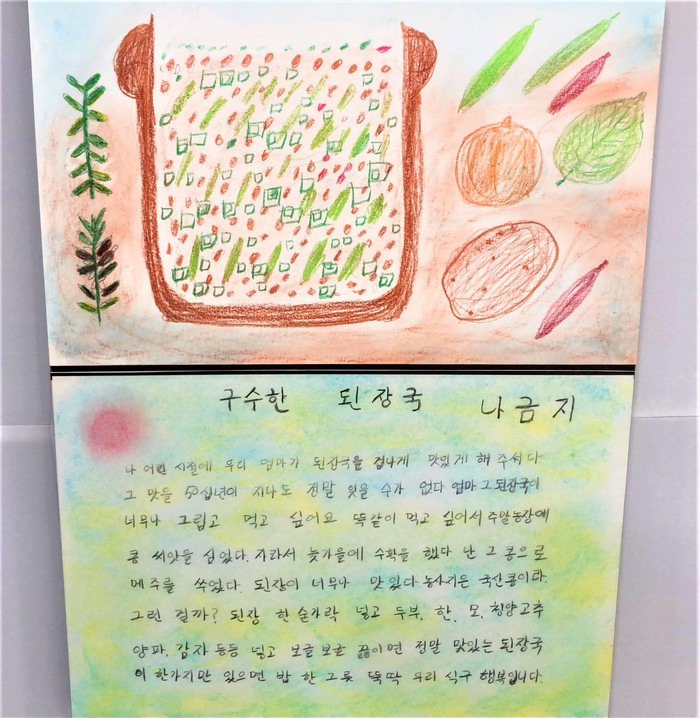 구수한 된장국 나금지
나 어린 시절에 우리 엄마가 된장국을 겁나게 맛있게 해 주셔다
그 맛을 50십년이 지나도 정말 잊을 수가 없다 엄마 그 된장국이
너무나 그립고 먹고 싶어요 똑같이 먹고 싶어서 주말농장에
콩 씨앗을 심었다. 자라서 늦가을에 수확을 했다 난 그 콩으로
메주를 쑤었다. 된장이 너무나 맛있다 농사지은 국산콩이라
그런 걸까? 된장 한숟가락 넣고 두부. 한. 모. 청양고추
양파. 감자 등등 넣고 보글보글 끓이면 정말 맛있는 된장국
이 한가지만 있으면 밥 한 그릇 뚝딱 우리 식구 행복입니다.